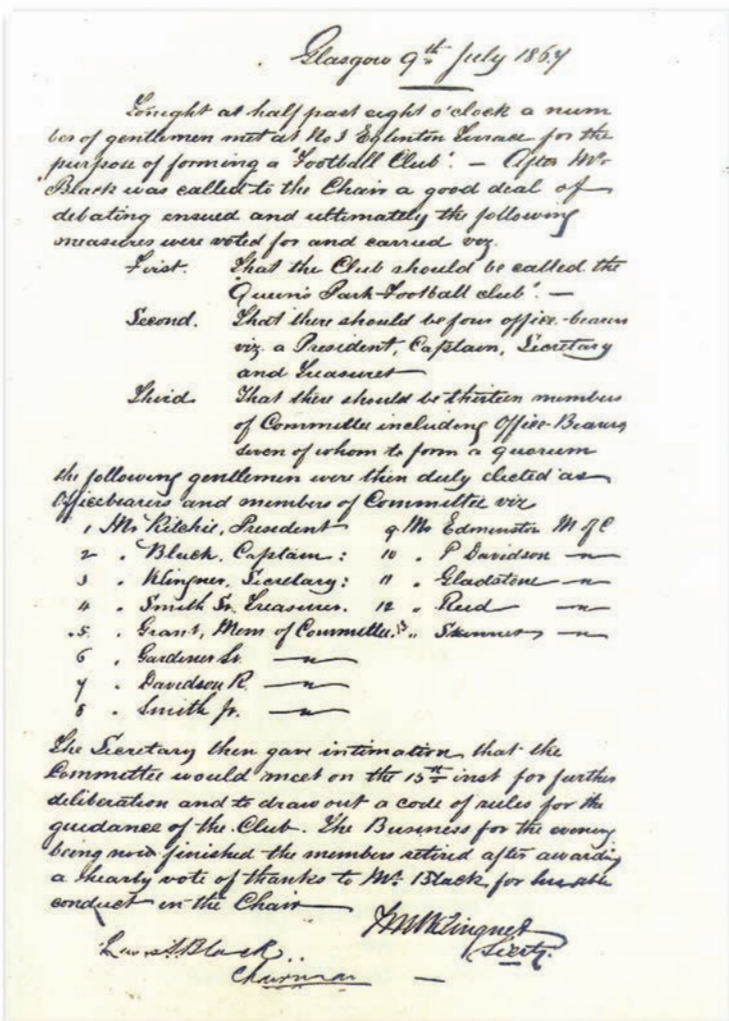 Glasgow 9th July 1867
Tonight at half past eight o'clock a num
ber of gentlemen met at No 3 Eglinton Terrace for the
purpose of forming a "Football Club". — After Mr
Black was called to the Chair a good deal of
debating ensued and ultimately the following
measures were voted for and carried viz.
First. That the Club should be called the
"Queen's Park Football club". —
Second. That there should be four office-bearers
viz. a President, Captain, Secretary
and Treasurer
Third. That there should be thirteen members
of Committee including Office-Bearers,
seven of whom to form a quorum
the following gentlemen were then duly elected as
Officebearers and members of Committee viz
1 Mr Ritchie, President 9 Mr Edmenston M of C
2 " Black, Captain: 10 " P Davidson — " —
3 " Klingner, Secretary: 11 " Gladstone — " —
4 " Smith Sr. Treasurer. 12 " Reid — " —
5 " Grant, Mem of Committee. 13 " Skinner — " —
6 " Gardiner Sr. — " —
7 " Davidson R. — " —
8 " Smith Jr. — " —
The Secretary then gave intimation, that the
Committee would meet on the 15th inst for further
deliberation and to draw out a code of rules for the
guidance of the Club. The Business for the evening
being now finished the members retired after awarding
a hearty vote of thanks to Mr. Black for his able
conduct in the Chair
Klingner
Secty.
Lewis Black
Chairman —